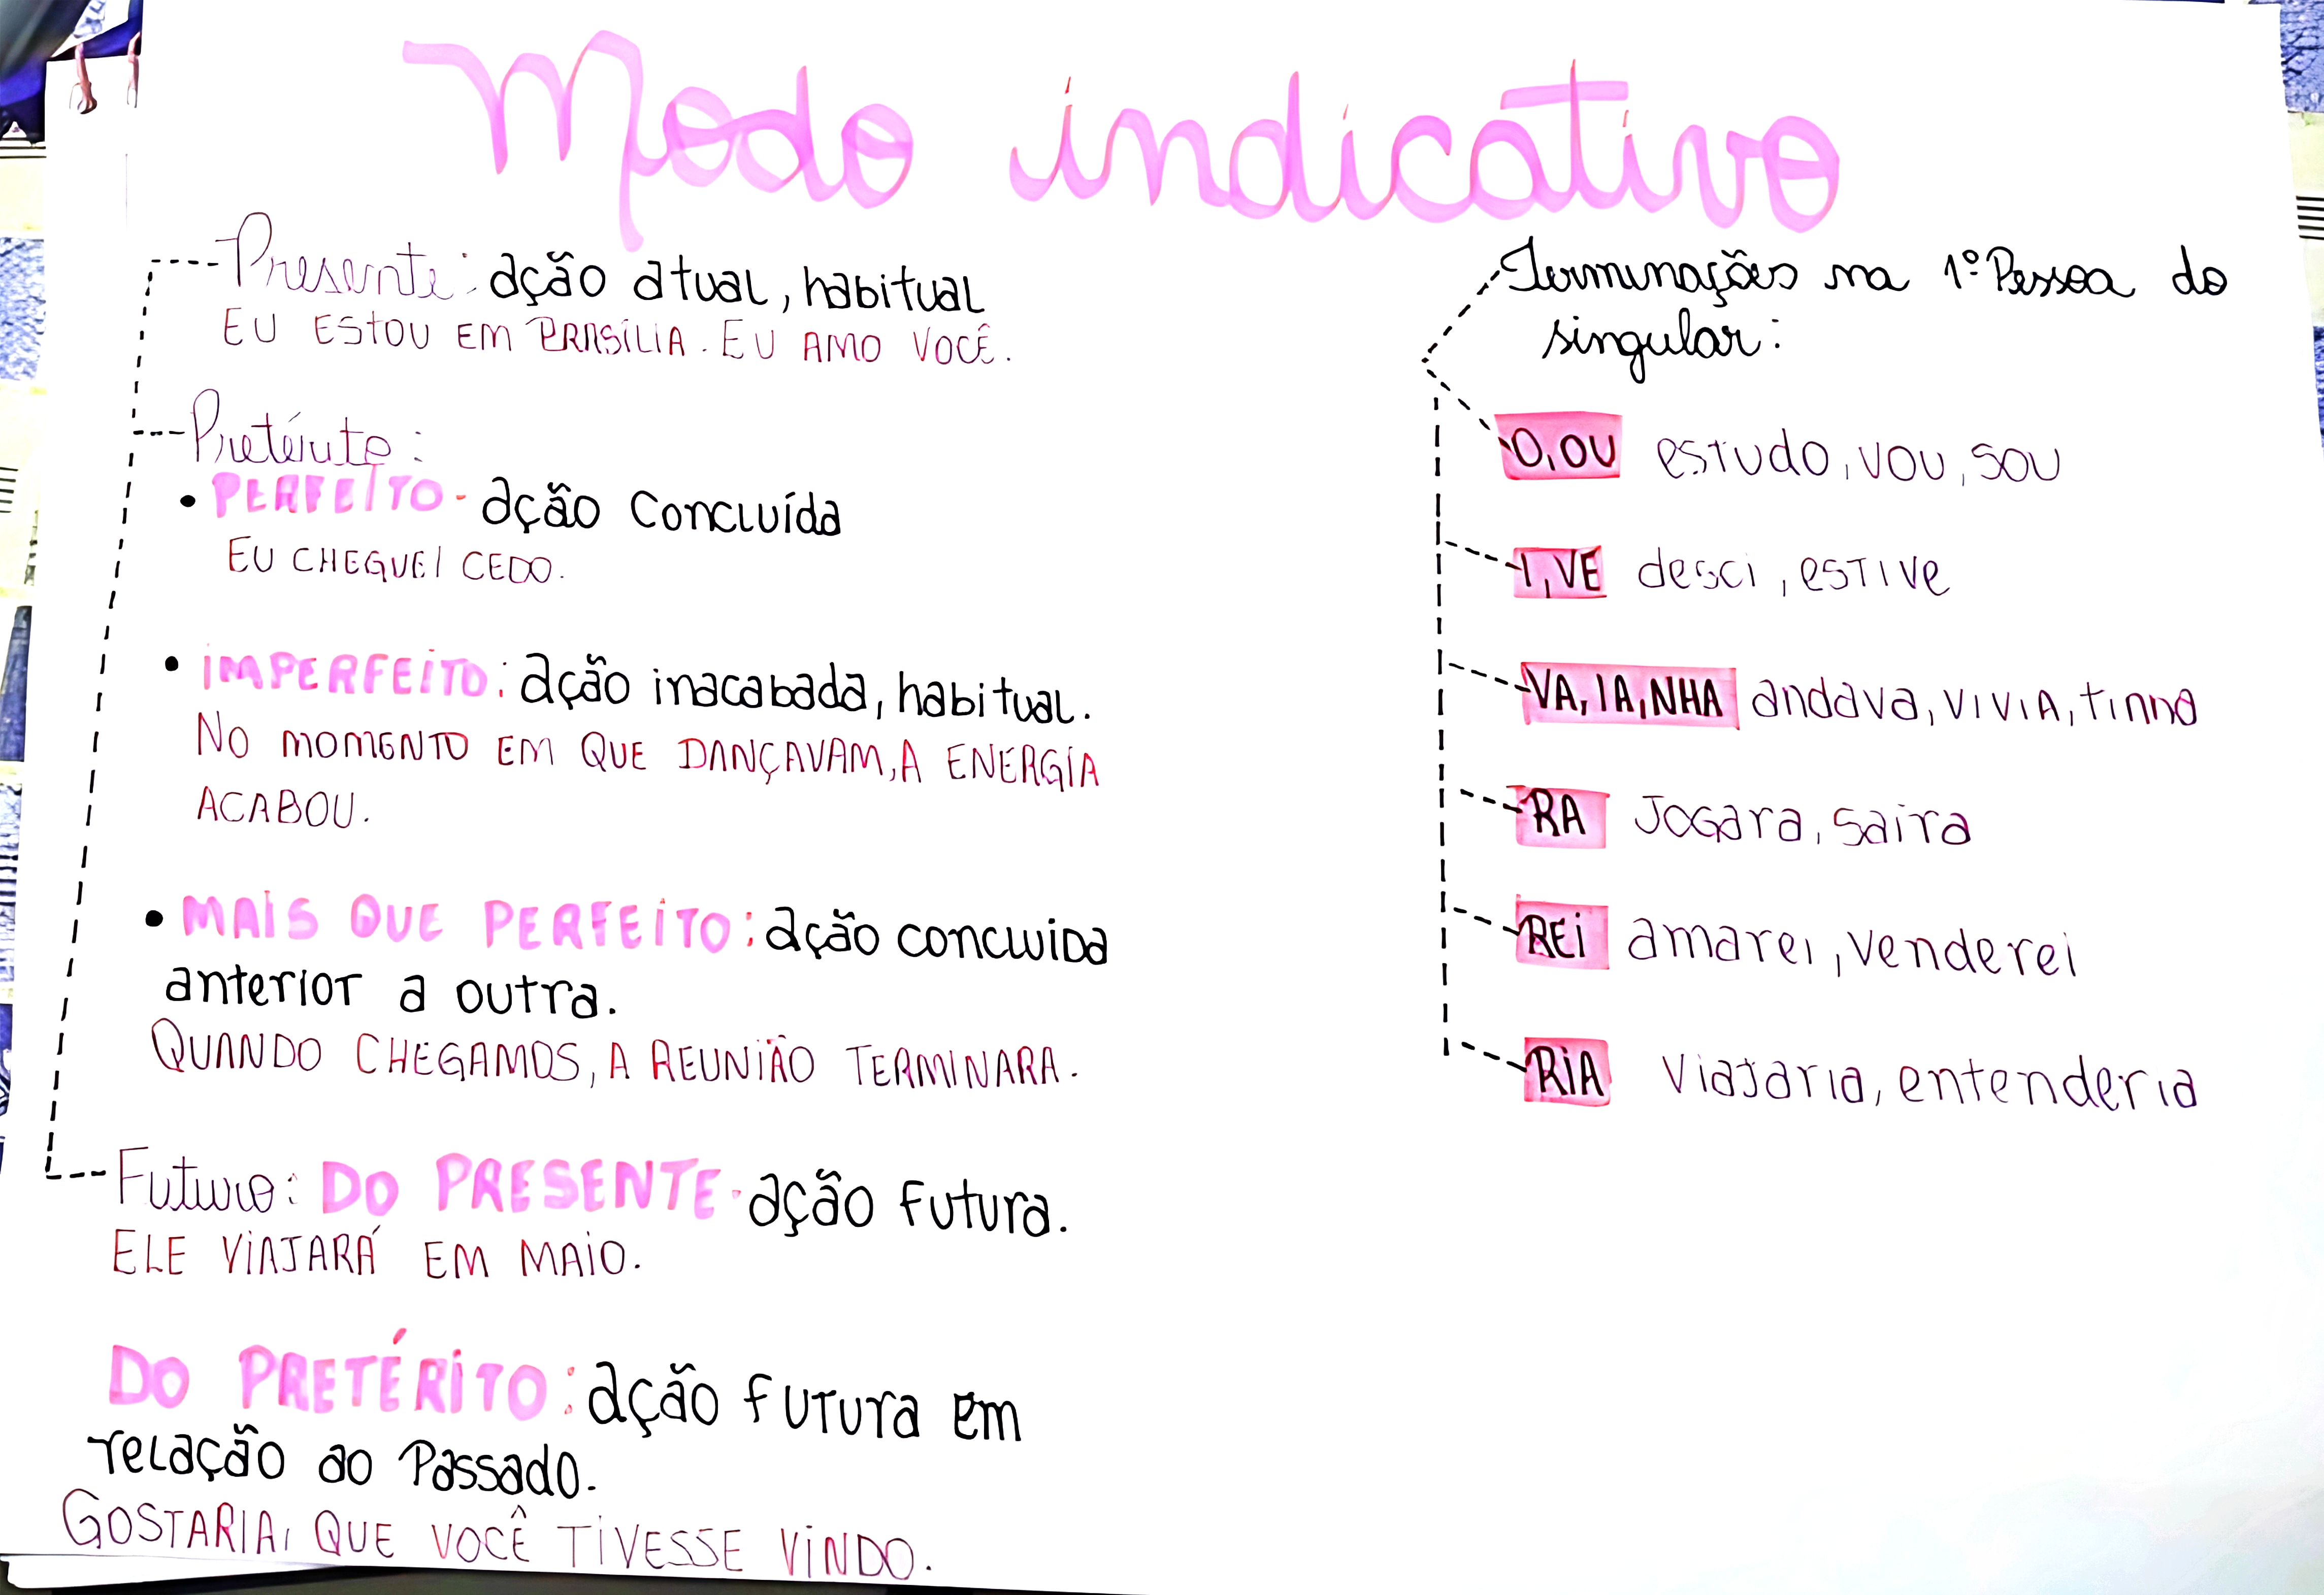 Modo indicativo
Presente: ação atual, habitual
EU ESTOU EM BRASÍLIA. EU AMO VOCÊ.
Pretérito:
• PERFEITO - ação concluída
EU CHEGUEI CEDO.
• IMPERFEITO: ação inacabada, habitual.
NO MOMENTO EM QUE DANÇAVAM, A ENERGIA
ACABOU.
• MAIS QUE PERFEITO: ação concluida
anterior a outra.
QUANDO CHEGAMOS, A REUNIÃO TERMINARA.
Futuro: DO PRESENTE - ação futura.
ELE VIAJARÁ EM MAIO.
DO PRETÉRITO: ação futura em
relação ao Passado.
GOSTARIA, QUE VOCÊ TIVESSE VINDO.
Terminações na 1º Pessoa do
singular:
O, OU estudo, vou, sou
I, VE desci, estive
VA, IA, NHA andava, vivia, tinha
RA Jogara, saira
REI amarei, venderei
RIA viajaria, entenderia